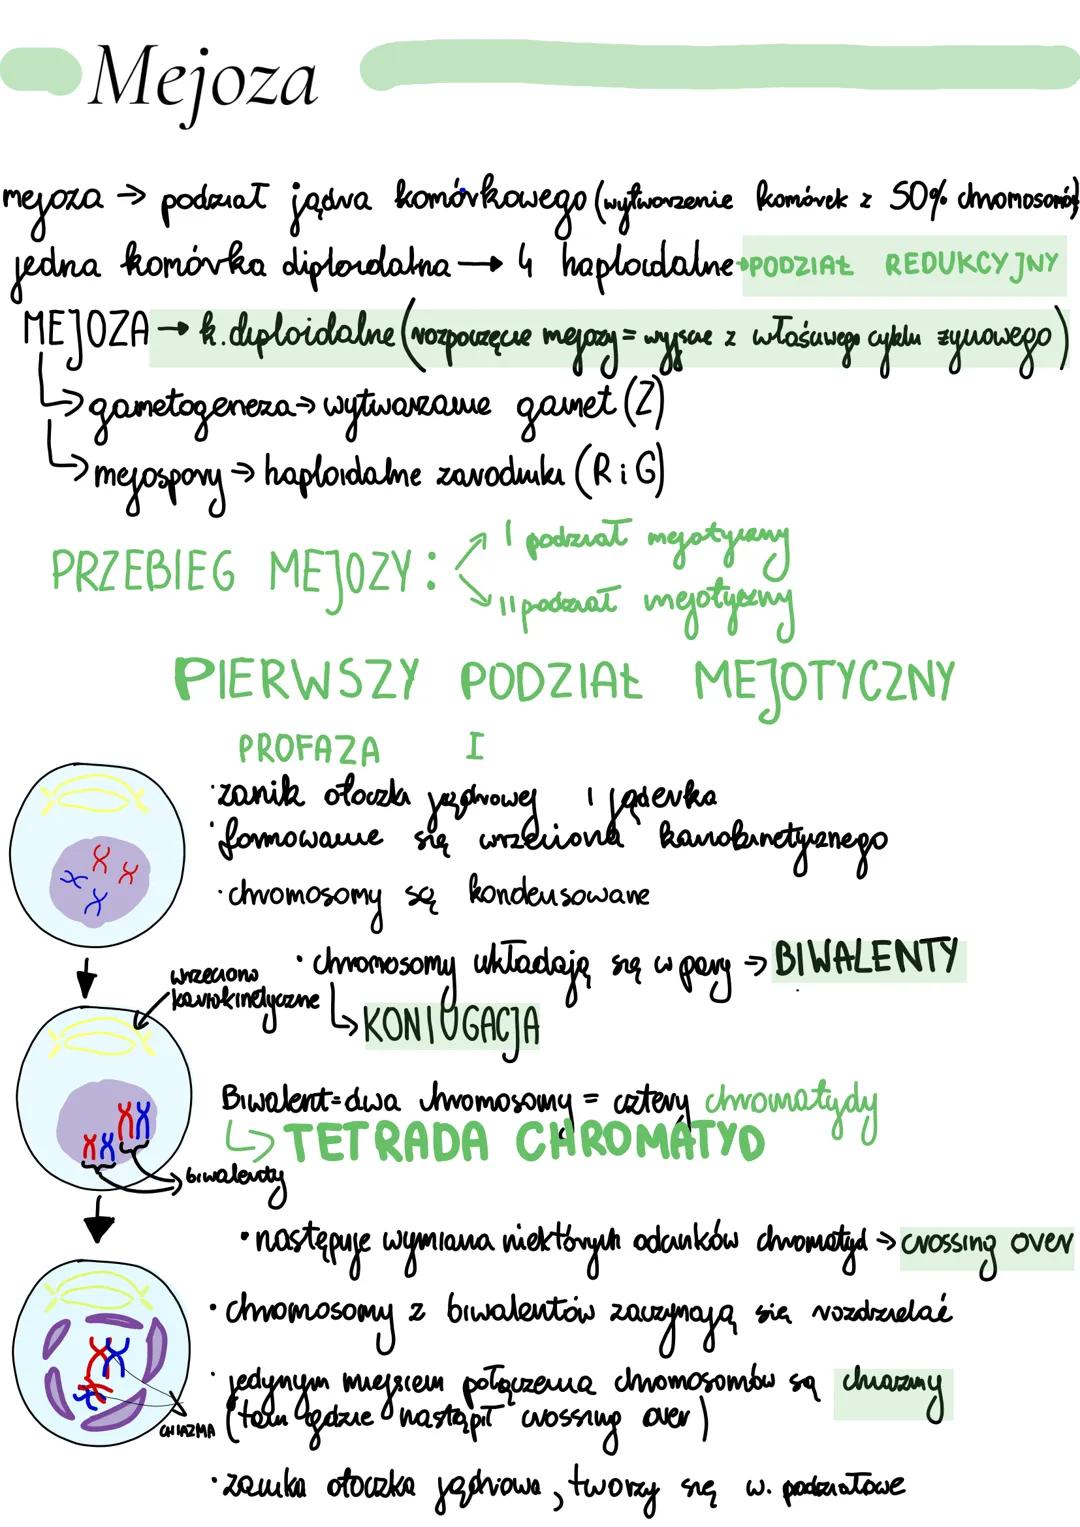 Mejoza
mejoza → podział jądra komórkowego (wytworzenie komórek z 50% chromosomów)
jedna komórka diploidalna → 4 haploidalne → PODZIAŁ REDUKCYJNY
MEJOZA → k. diploidalne (rozpoczęcie mejozy = wyjście z właściwego cyklu życiowego)
↳ gametogeneza → wytwarzanie gamet (Z)
↳ mejospory → haploidalne zarodniki (R i G)
PRZEBIEG MEJOZY:
I podział mejotyczny
II podział mejotyczny
PIERWSZY PODZIAŁ MEJOTYCZNY
PROFAZA I
• zanik otoczki jądrowej i jąderka
• formowanie się wrzeciona kariokinetycznego
• chromosomy są kondensowane
• chromosomy układają się w pary → BIWALENTY
↳ KONIUGACJA
wrzeciono
kariokinetyczne
Biwalent = dwa chromosomy = cztery chromatydy
↳ TETRADA CHROMATYD
biwalenty
• następuje wymiana niektórych odcinków chromatyd → crossing over
• chromosomy z biwalentów zaczynają się rozdzielać
• jedynym miejscem połączenia chromosomów są chiazmy
(tam gdzie nastąpił crossing over)
CHIAZMA
• zanika otoczka jądrowa, tworzy się w. podziałowe